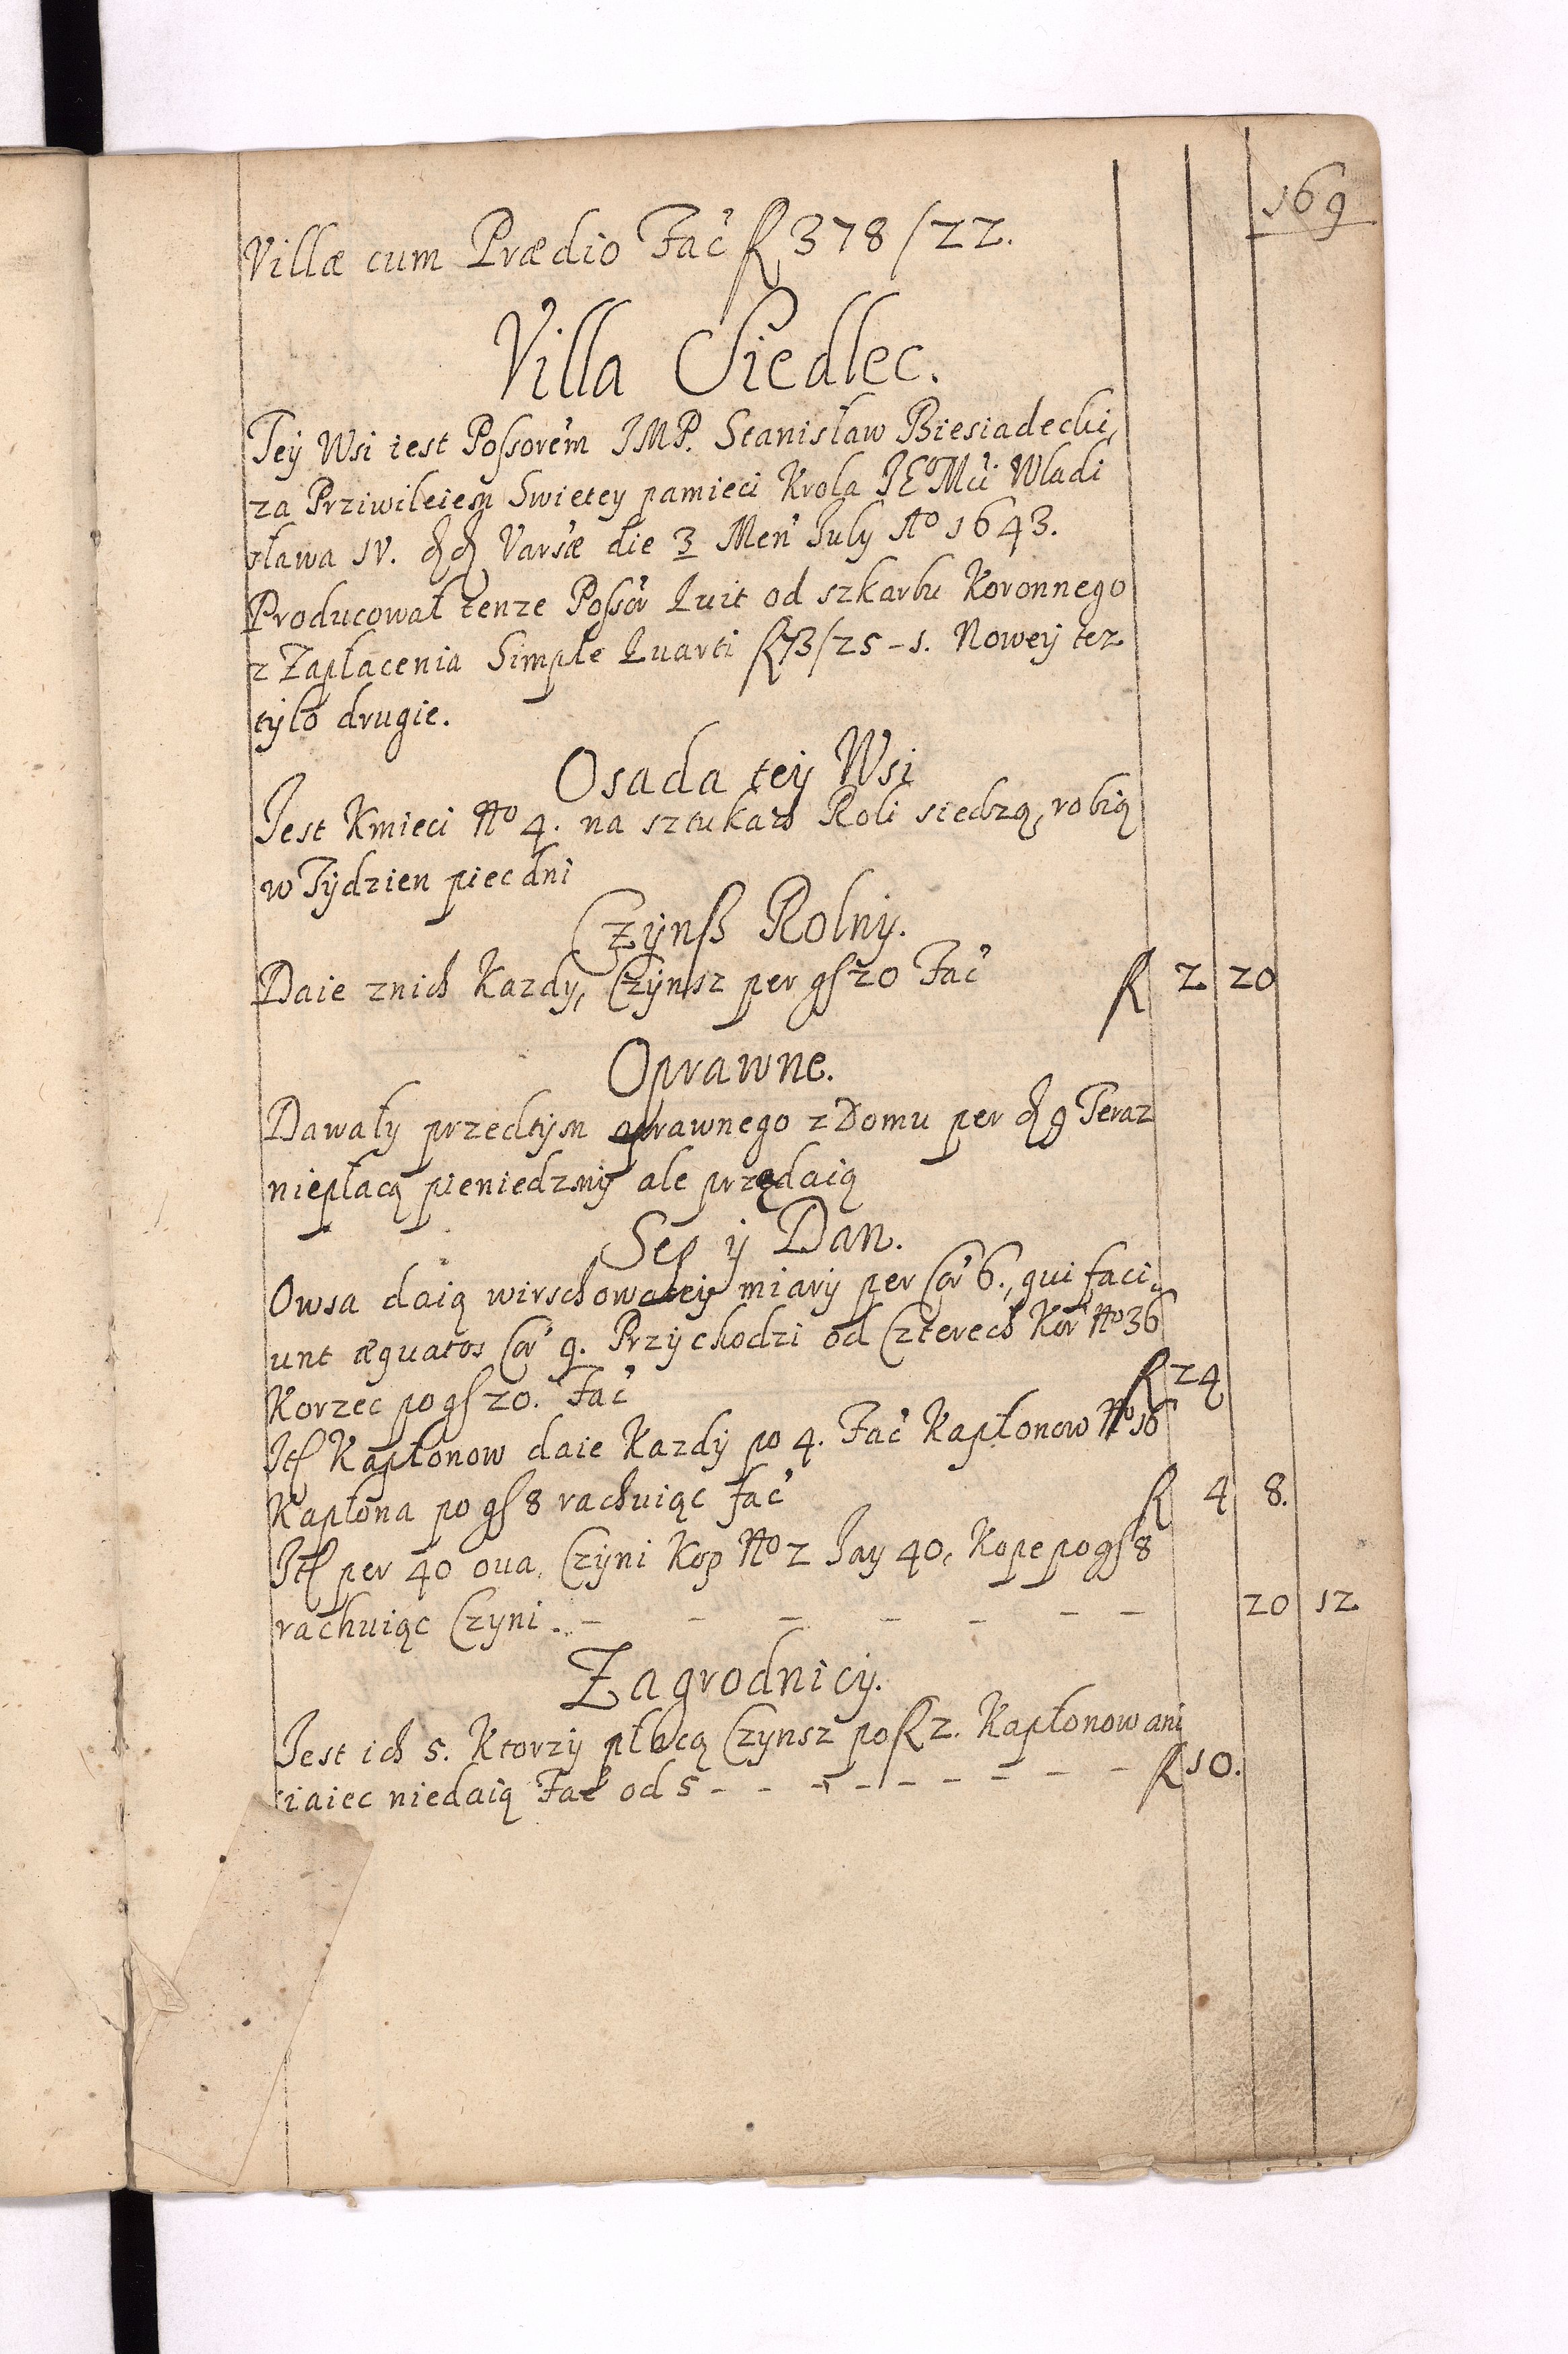 169
Villæ cum Prædio Fac̃ fl 378/22.
Villa Siedlec.
Tey Wsi iest Possore͂m JMP. Stanisław Biesiadecki,
za Prziwileiem Swietey pamieci Krola JE͂o Mci Wladi
sława IV. dd Vars̃æ die 3 Meñ July Ao 1643.
Producował tenze Posso͂r Quit od szkarbu Koronnego
z Zapłacenia Simple Quarti fl 73/25-1. Nowey tez
tylo drugie.
Osada tey Wsi
Jest Kmieci No 4. na sztukach Roli siedzą, robią
w Tydzien piec dni
Czynsz Rolny.
Daie znich Kazdy, Czynsz per gs 20 Fac̃ fl 2 20
Oprawne.
Dawały przedtym oprawnego z Domu per d 9 Teraz
niepłacą pieniedzmy ale przędaią
Sep y Dan.
Owsa daią wirschowatey miary per Co͂r 6., qui faci,
unt æquatos Co͂r 9. Przychodzi od Czterech Ko͂r No 36
Korzec po gs 20. Fac̃ fl 24
It Kapłonow daie Kazdy po 4. Fac̃ Kapłonow No 16
Kapłona po gs 8 rachuiąc fac̃ fl 4 8.
It per 40 oua, Czyni Kop No 2 Jay 40, Kope po gs 8
rachuiąc Czyni - - - - - - - 20 12
Zagrodnicy.
Jest ich 5. Ktorzy płacą Czynsz po fl 2. Kapłonow ani
iaiec niedaią Fac̃ od 5 - - - - - - - - - - fl 10.